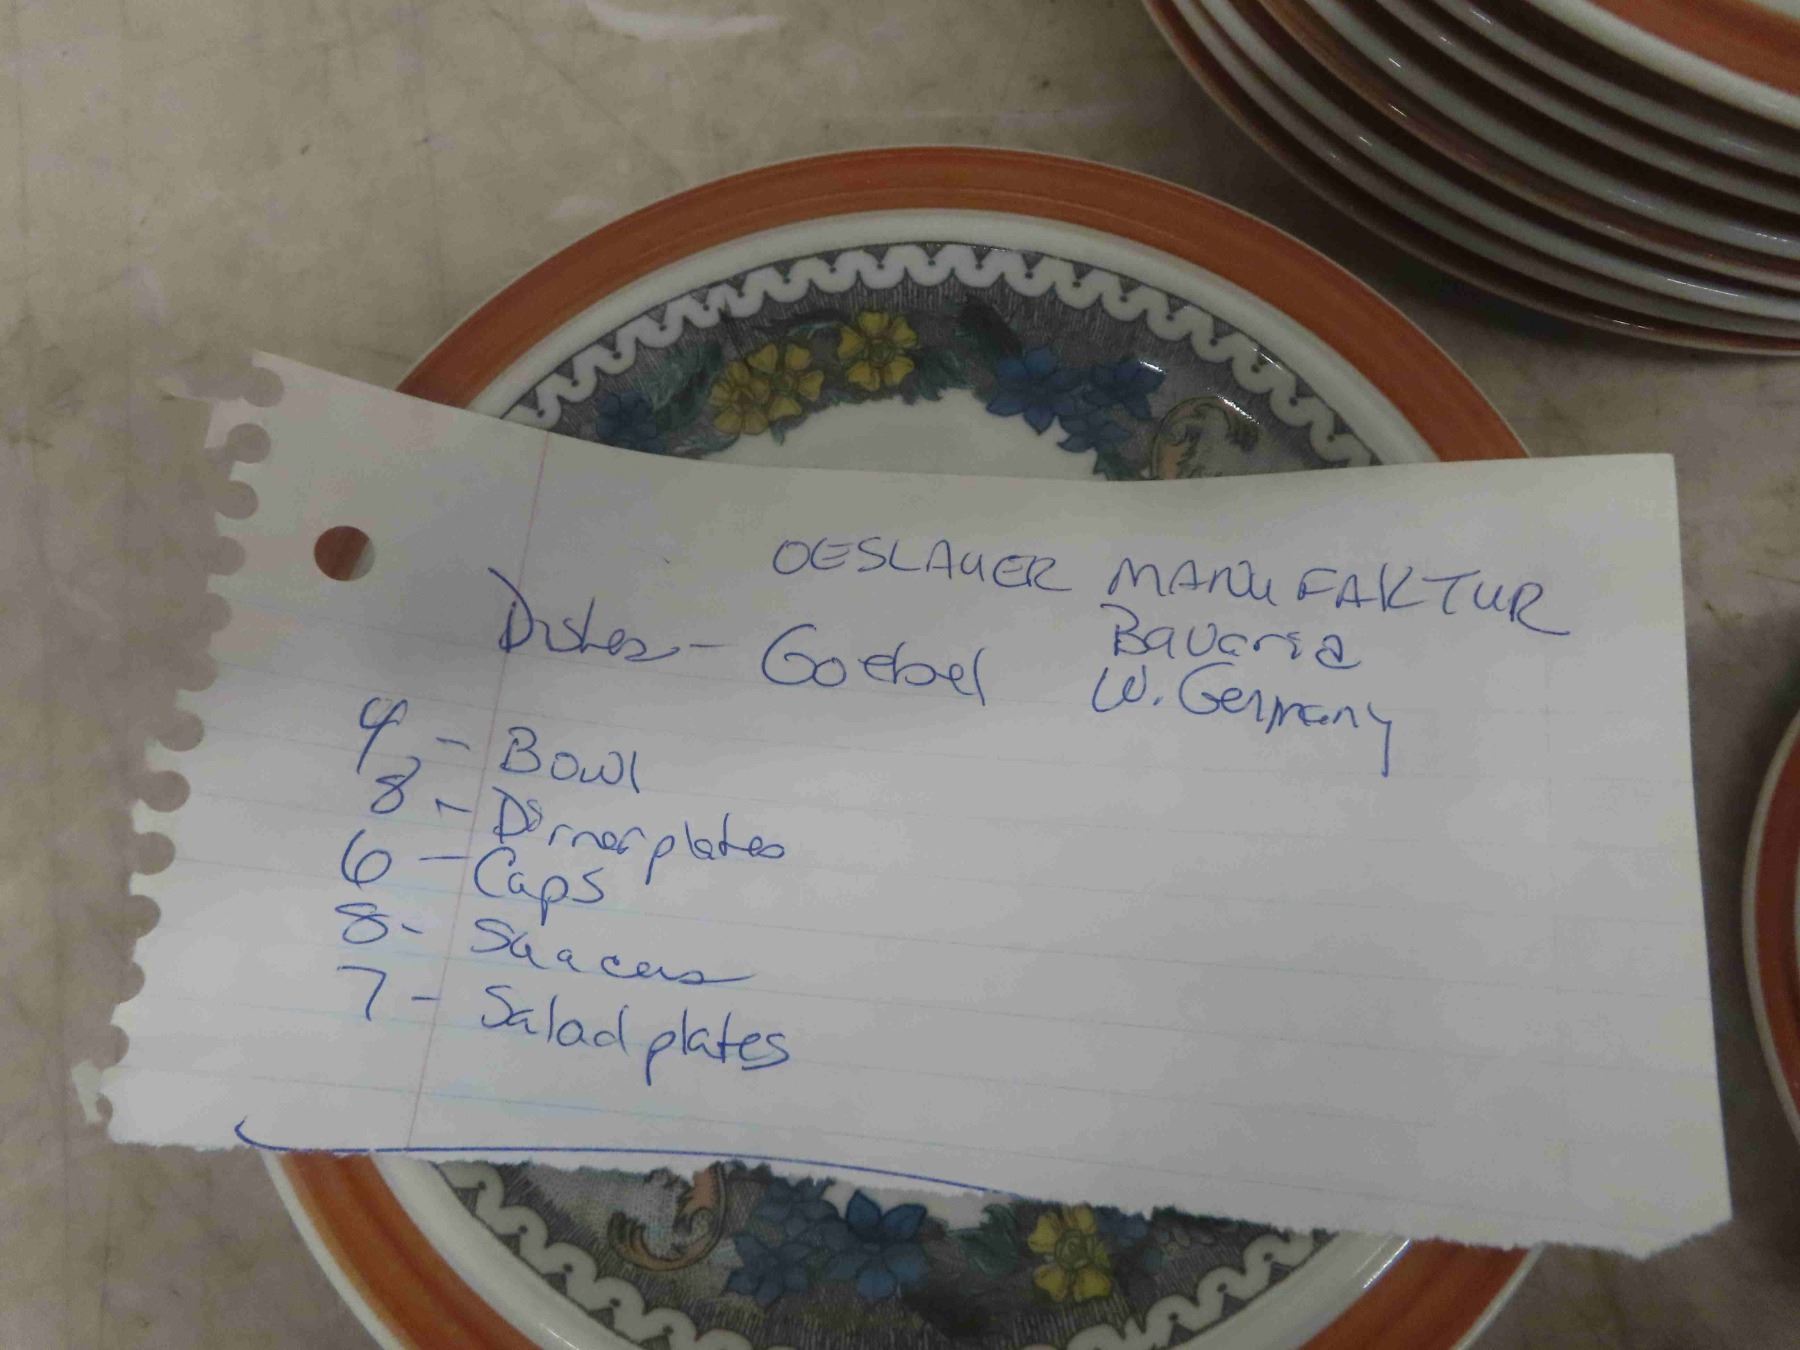 OESLAUER MANUFAKTUR
Dishes - Goebel Bavaria
W. Germany
4 - Bowl
8 - Dinner plates
6 - Cups
8 - Saucers
7 - Salad plates